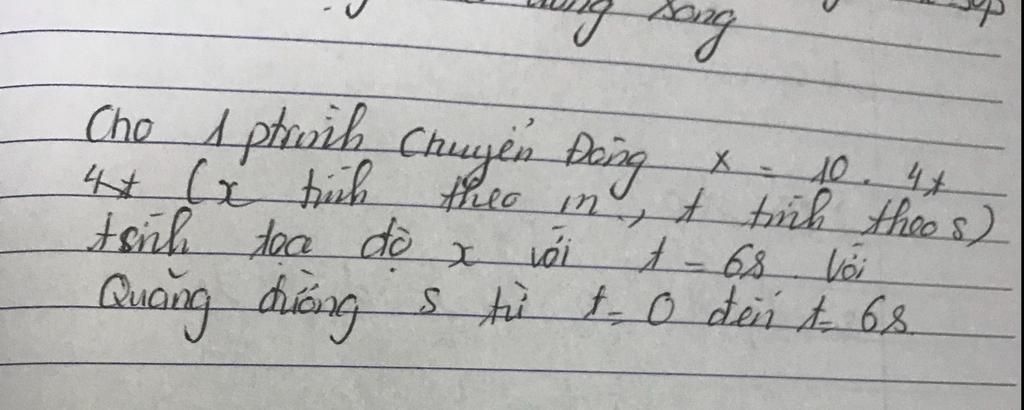 dung song
Cho 1 ptrình Chuyển Động x = 10. 4t
4t (x tính theo m, t tính theo s)
tính tọa độ x với t = 6s. Với
Quãng đường s từ t = 0 đến t = 6s